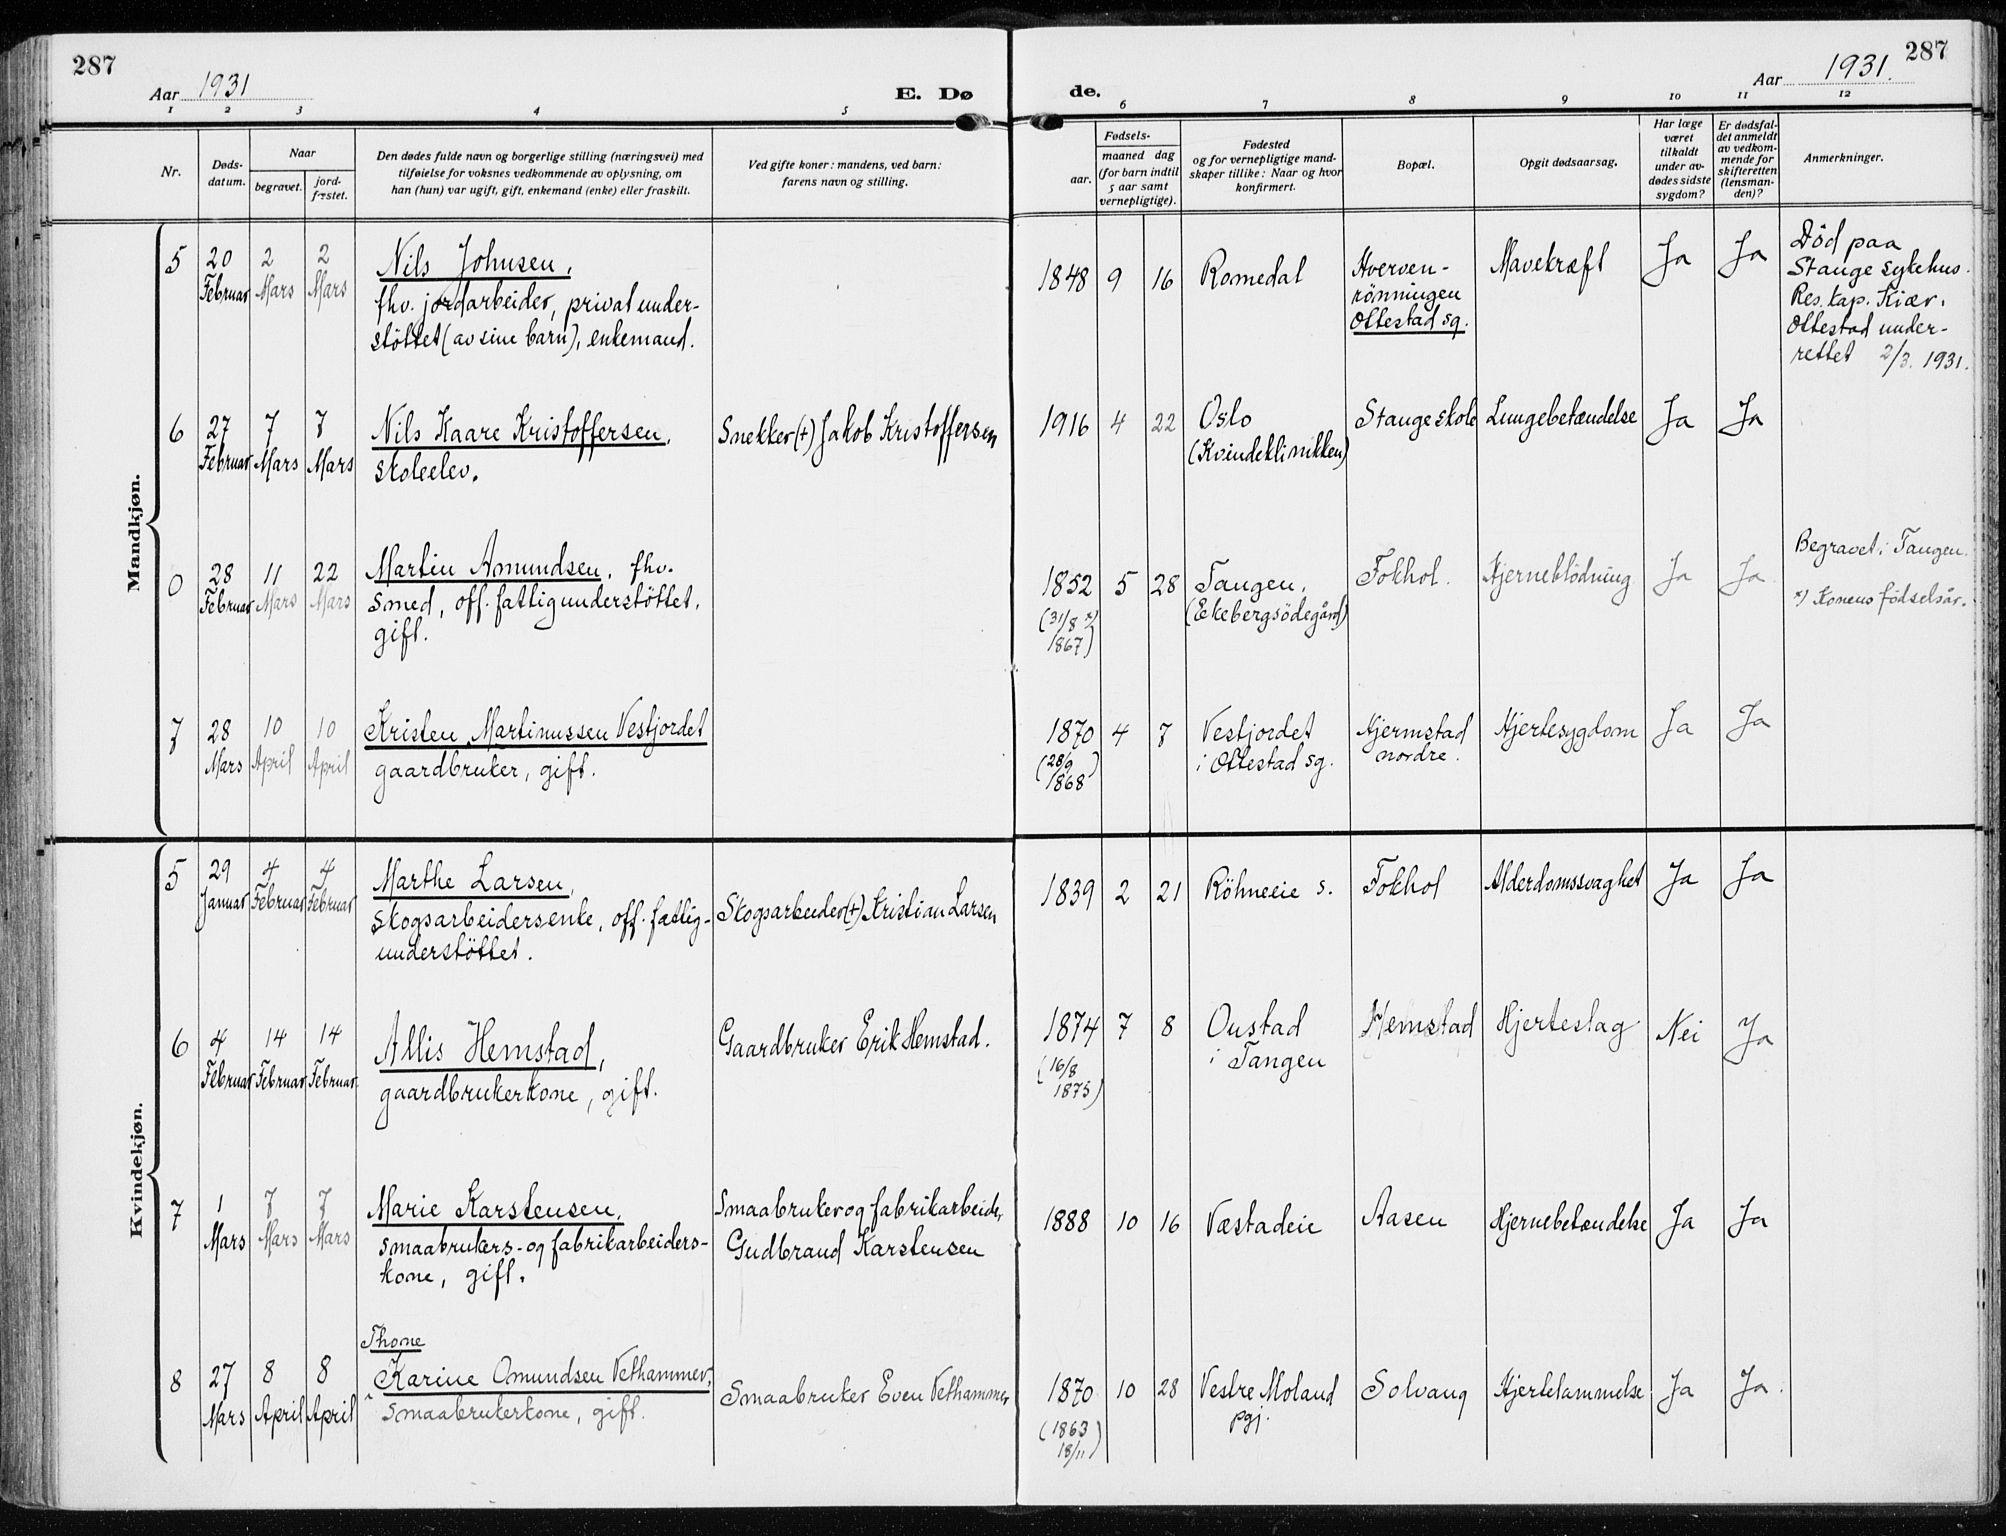 287
Aar 1931
E. Dø
de.
Aar 1931.
287
1 2 3 4 5 6 7 8 9 10 11 12
Nr.
Døds-
datum.
Naar
begravet.
jord-
fæstet.
Den dødes fulde navn og borgerlige stilling (næringsvei) med
tilføielse for voksnes vedkommende av oplysning, om
han (hun) var ugift, gift, enkemand (enke) eller fraskilt.
Ved gifte koner: mandens, ved barn:
farens navn og stilling.
Fødsels-
aar.
maaned dag
(for barn indtil
5 aar samt
vernepligtige).
Fødested
og for vernepligtige mand-
skaper tillike: Naar og hvor
konfirmert.
Bopæl.
Opgit dødsaarsag.
Har læge
været
tilkaldt
under av-
dødes sidste
sygdom?
Er dødsfal-
det anmeldt
av vedkom-
mende for
skifteretten
(lensman-
den)?
Anmerkninger.
Mandkjøn.
5
20
Februar
2
Mars
2
Mars
Nils Johnsen,
fhv. jordarbeider, privat under-
støttet (av sine barn), enkemand.
1848 9 16
Romedal
Hverven-
rönningen
Ottestad sg.
Mavekræft
Ja
Ja
Död paa
Stange sykehus.
Res. kap. Kiær,
Ottestad under-
rettet 2/3. 1931.
6
27
Februar
7
Mars
7
Mars
Nils Kaare Kristoffersen,
skoleelev.
Snekker (+) Jakob Kristoffersen
1916 4 22
Oslo
(Kvindeklinikken)
Stange skole
Lungebetændelse
Ja
Ja
0
28
Februar
11
Mars
22
Mars
Martin Amundsen, fhv.
smed, off. fattigunderstöttet,
gift.
1852 5 28
(31/8 x)
1867)
Tangen,
(Ekebergsödegård)
Fokhol.
Hjerneblödning
Ja
Ja
Begravet i Tangen.
x) Konens födselsår.
7
28
Mars
10
April
10
April
Kristen Martinussen Vestjordet
gaardbruker, gift.
1870 4 7
(28/9
1868)
Vestjordet
i Ottestad sg.
Hjermstad
nordre.
Hjertesygdom
Ja
Ja
Kvindekjøn.
5
29
Januar
4
Februar
4
Februar
Marthe Larsen,
skogsarbeidersenke, off. fattig-
understöttet.
Skogsarbeider (+) Kristian Larsen
1839 2 21
Röhneeie s.
Fokhol
Alderdomssvaghet
Ja
Ja
6
4
Februar
14
Februar
14
Februar.
Allis Hemstad,
gaardbrukerkone, gift.
Gaardbruker Erik Hemstad.
1874 7 8
(16/8
1875)
Oustad
i Tangen
Hemstad
Hjerteslag
Nei
Ja
7
1
Mars
7
Mars
7
Mars
Marie Karstensen,
smaabrukers- og fabrikarbeiders-
kone, gift.
Smaabruker og fabrikarbeider
Gudbrand Karstensen
1888 10 16
Væstadeie
Aasen
Hjernebetændelse
Ja
Ja
8
27
Mars
8
April
8
April
Thone
Karine Omundsen Vethammer,
smaabrukerkone, gift.
Smaabruker Even Vethammer
1870 10 28
(1863
18/11)
Vestre Moland
pgj.
Solvang
Hjertelammelse
Ja
Ja.